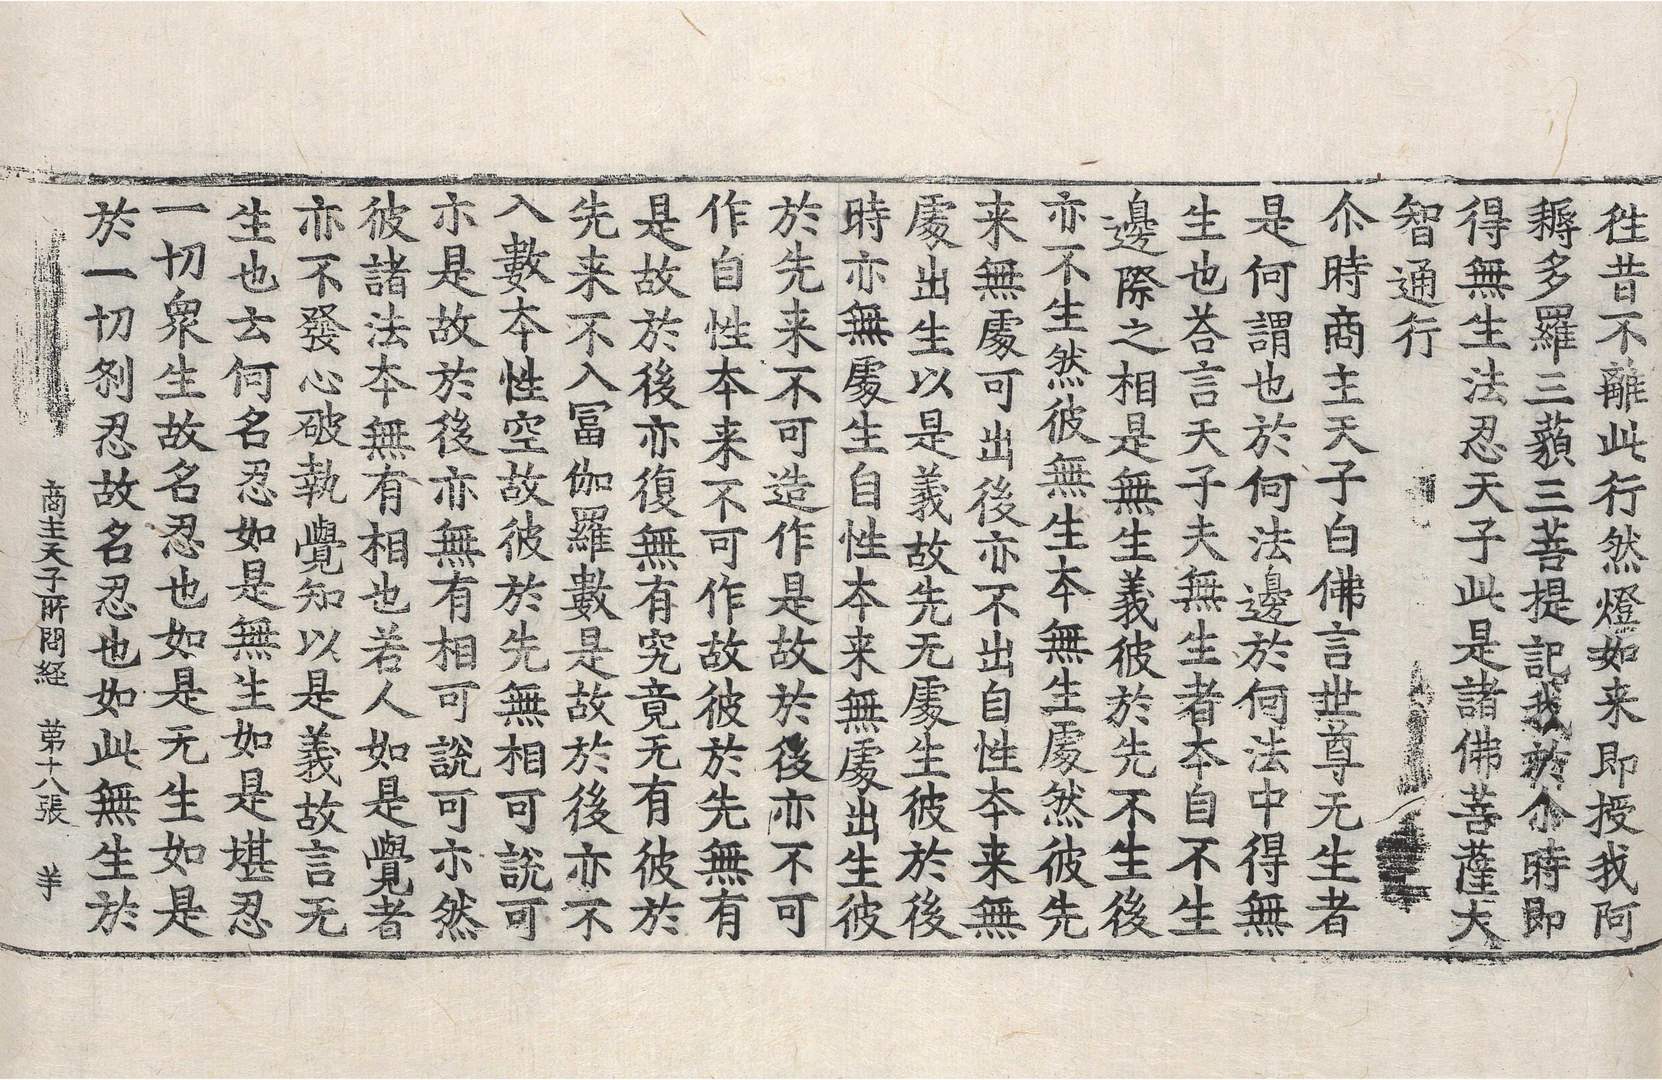 徃昔不離此行然燈如来即授我阿
耨多羅三藐三菩提記我於尒時即
得無生法忍天子此是諸佛菩薩大
智通行
尒時商主天子白佛言世尊无生者
是何謂也於何法邊於何法中得無
生也荅言天子夫無生者夲自不生
邊際之相是無生義彼於先不生後
亦不生然彼無生夲無生處然彼先
来無處可出後亦不出自性夲来無
處出生以是義故先无處生彼於後
時亦無處生自性夲来無處出生彼
於先来不可造作是故於後亦不可
作自性夲来不可作故彼於先無有
是故於後亦復無有究竟无有彼於
先来不入冨伽羅數是故於後亦不
入數夲性空故彼於先無相可說可
亦是故於後亦無有相可說可亦然
彼諸法夲無有相也若人如是覺者
亦不發心破執覺知以是義故言无
生也云何名忍如是無生如是堪忍
一切衆生故名忍也如是无生如是
於一切刹忍故名忍也如此無生於
商主天子所問経 苐十八張 羊